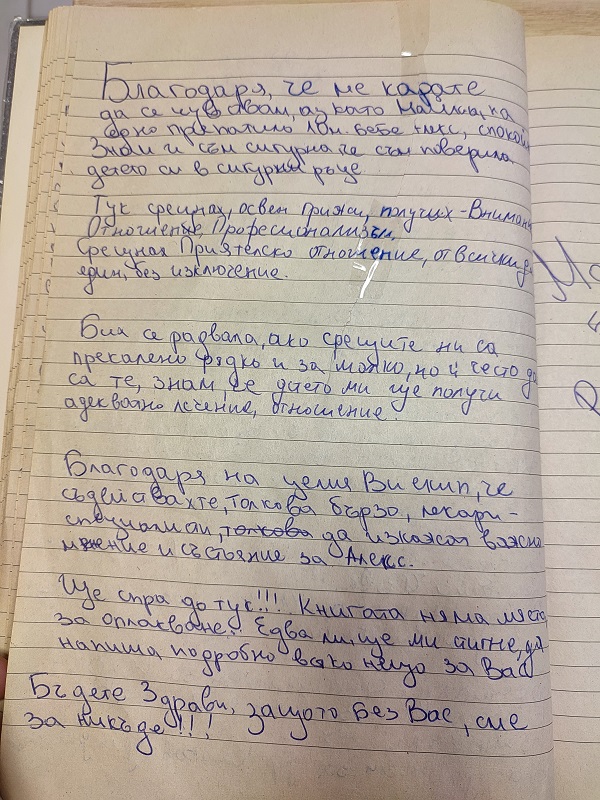 Благодаря, че ме карате
да се чувствам, аз като майка, на
едно препатило бебе Алекс, спокой
Знам и съм сигурна че съм поверила
детето си в сигурни ръце.
Тук срещнах, освен грижи, получих - Внимани
Отношение, Професионализъм.
Срещнах Приятелско отношение, от всички до
един, без изключение.
Бих се радвала, ако срещите ни са
прекалено рядко и за малко, но и често да
са те, знам, че детето ми ще получи
адекватно лечение, отношение.
Благодаря на целия Ви екип, че
съдействахте, толкова бързо, лекари-
специалисти, толкова да изкажат важно
мнение и състояние за Алекс.
Ще спра до тук!!! Книгата няма място
за оплакване. Едва ли ще ми стигне, да
напиша, подробно всяко нещо за Вас
Бъдете Здрави, защото без Вас, сме
за никъде!!!
Мо